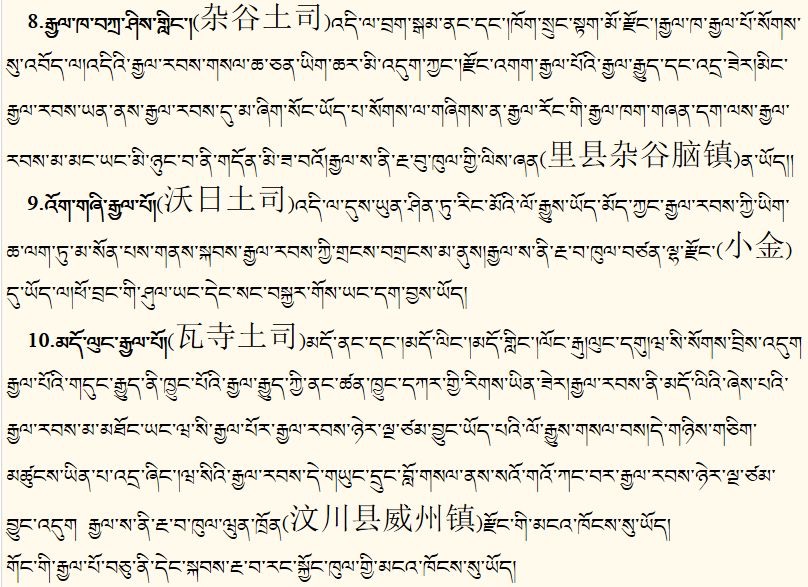 8.རྒྱལ་ཁ་བཀྲ་ཤིས་གླིང་།(杂谷土司)འདི་ལ་བྲག་སྒམ་ནང་དང་།ཁོག་སྲུང་སྟག་མོ་རྫོང་།རྒྱལ་ཁ་རྒྱལ་པོ་སོགས་
སུ་འབོད་ལ།འདིའི་རྒྱལ་རབས་གསལ་ཆ་ཅན་ཡིག་ཆར་མི་འདུག་ཀྱང་།རྫོང་འགག་རྒྱལ་པོའི་རྒྱལ་རྒྱུད་དང་འདྲ་ཟེར།མིང་
རྒྱལ་རབས་ཡན་ནས་རྒྱལ་རབས་དུ་མ་ཞིག་སོང་ཡོད་པ་སོགས་ལ་གཞིགས་ན་རྒྱལ་རོང་གི་རྒྱལ་ཁག་གཞན་དག་ལས་རྒྱལ་
རབས་མ་མང་ཡང་མི་ཉུང་བ་ནི་གདོན་མི་ཟ་བའོ།རྒྱལ་ས་ནི་རྔ་བུ་ཁུལ་གྱི་ལིས་ཞན(里县杂谷脑镇)ན་ཡོད།།
9.འོག་གཞི་རྒྱལ་པོ།(沃日土司)འདི་ལ་དུས་ཡུན་ཤིན་ཏུ་རིང་མོའི་ལོ་རྒྱུས་ཡོད་མོད་ཀྱང་རྒྱལ་རབས་ཀྱི་ཡིག་
ཆ་ལག་ཏུ་མ་སོན་པས་གནས་སྐབས་རྒྱལ་རབས་ཀྱི་གྲངས་བགྲངས་མ་ནུས།རྒྱལ་ས་ནི་རྔ་བ་ཁུལ་བཙན་ལྷ་རྫོང་(小金)
དུ་ཡོད་ལ།ཕོ་བྲང་གི་ཤུལ་ཡང་དེང་སང་བསྐྱར་གོས་ཡང་དག་བྱས་ཡོད།
10.མདོ་ལུང་རྒྱལ་པོ།(瓦寺土司)མདོ་ནང་དང་།མདོ་ལིང་།མདོ་གླིང་།ལོང་རྒྱུ།ལུང་དགུ།ཝ་སི་སོགས་བྲིས་འདུག
རྒྱལ་པོའི་གདུང་རྒྱུད་ནི་ཁྱུང་པོའི་རྒྱལ་རྒྱུད་ཀྱི་ནང་ཚན་ཁྱུང་དཀར་གྱི་རིགས་ཡིན་ཟེར།རྒྱལ་རབས་ནི་མདོ་ལིའི་ཞེས་པའི་
རྒྱལ་རབས་མ་མཐོང་ཡང་ཝ་སི་རྒྱལ་པོར་རྒྱལ་རབས་ཉེར་ལྔ་ཙམ་བྱུང་ཡོད་པའི་ལོ་རྒྱུས་གསལ་བས།དེ་གཉིས་གཅིག་
མཚུངས་ཡིན་པ་འདྲ་ཞིང་།ཝ་སིའི་རྒྱལ་རབས་དེ་གཡུང་དྲུང་བློ་གསལ་ནས་སའོ་གའོ་ཀང་བར་རྒྱལ་རབས་ཉེར་ལྔ་ཙམ་
བྱུང་འདུག རྒྱལ་ས་ནི་རྔ་བ་ཁུལ་ལུན་ཁྲོན(汶川县威州镇)རྫོང་གི་མངའ་ཁོངས་སུ་ཡོད།
གོང་གི་རྒྱལ་པོ་བཅུ་ནི་དེང་སྐབས་རྔ་བ་རང་སྐྱོང་ཁུལ་གྱི་མངའ་ཁོངས་སུ་ཡོད།